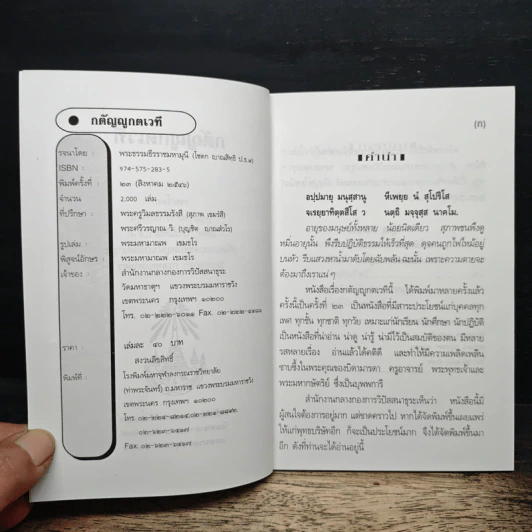 กตัญญูกตเวที
รจนาโดย : พระธรรมธีรราชมหามุนี (โชดก ญาณสิทธิ ป.ธ.๙)
ISBN : 974-575-283-5
พิมพ์ครั้งที่ : ๒๓ (สิงหาคม ๒๕๔๖)
จำนวน 2,000 เล่ม
ที่ปรึกษา : พระครูวิมลธรรมรังสี (สุภาพ เขมรํสี)
พระศรีวรญาณ วิ. (บุญชิต ญาณสํวโร)
รูปเล่ม : พระมหามาณพ เขมธโร
พิสูจน์อักษร พระมหามาณพ เขมธโร
เจ้าของ : สำนักงานกลางกองการวิปัสสนาธุระ
วัดมหาธาตุฯ แขวงพระบรมมหาราชวัง
เขตพระนคร กรุงเทพฯ ๑๐๒๐๐
โทร. Fax.
ราคา : เล่มละ ๔๐ บาท
สงวนลิขสิทธิ์
พิมพ์ที่ : โรงพิมพ์มหาจุฬาลงกรณราชวิทยาลัย
(ท่าพระจันทร์) ถ.มหาราช แขวงพระบรมมหาราชวัง
เขตพระนคร กรุงเทพฯ ๑๐๒๐๐
โทร
Fax:
(ก)
คำนำ
อปฺปมายุ มนุสฺสานํ หีเฬยฺย นํ สุโปริโส
จเรยฺยาทิตฺตสีโส ว นตฺถิ มจฺจุสฺส นาคโม.
อายุของมนุษย์ทั้งหลาย น้อยนิดเดียว สุภาพชนพึงดู
หมิ่นอายุนั้น พึงรีบปฏิบัติธรรมให้เร็วที่สุด ดุจคนถูกไฟไหม้อยู่
บนหัว รีบแสวงหาน้ำมาดับโดยฉับพลัน ฉะนั้น เพราะความตายจะ
ต้องมาถึงเราแน่ ๆ
หนังสือเรื่องกตัญญูกตเวทีนี้ ได้พิมพ์มาหลายครั้งแล้ว
ครั้งนี้เป็นครั้งที่ ๒๓ เป็นหนังสือที่มีสาระประโยชน์แก่บุคคลทุก
เพศ ทุกชั้น ทุกชาติ ทุกวัย เหมาะแก่นักเรียน นักศึกษา นักปฏิบัติ
เป็นหนังสือที่น่าอ่าน น่าดู น่ารู้ น่ามีไว้เป็นสมบัติของตน มีหลาย
รสหลายเรื่อง อ่านแล้วได้คติดี และทำให้มีความเพลิดเพลิน
ซาบซึ้งในพระคุณของบิดามารดา ครูอาจารย์ พระพุทธเจ้าและ
พระมหากษัตริย์ ซึ่งเป็นบุพพการี
สำนักงานกลางกองการวิปัสสนาธุระเห็นว่า หนังสือนี้มี
ผู้สนใจต้องการอยู่มาก แต่ขาดคราวไป หากได้จัดพิมพ์ขึ้นเผยแพร่
ให้แก่พุทธบริษัทอีก ก็จะเป็นประโยชน์มาก จึงได้จัดพิมพ์ขึ้นมา
อีก ดังที่ท่านจะได้อ่านอยู่นี้